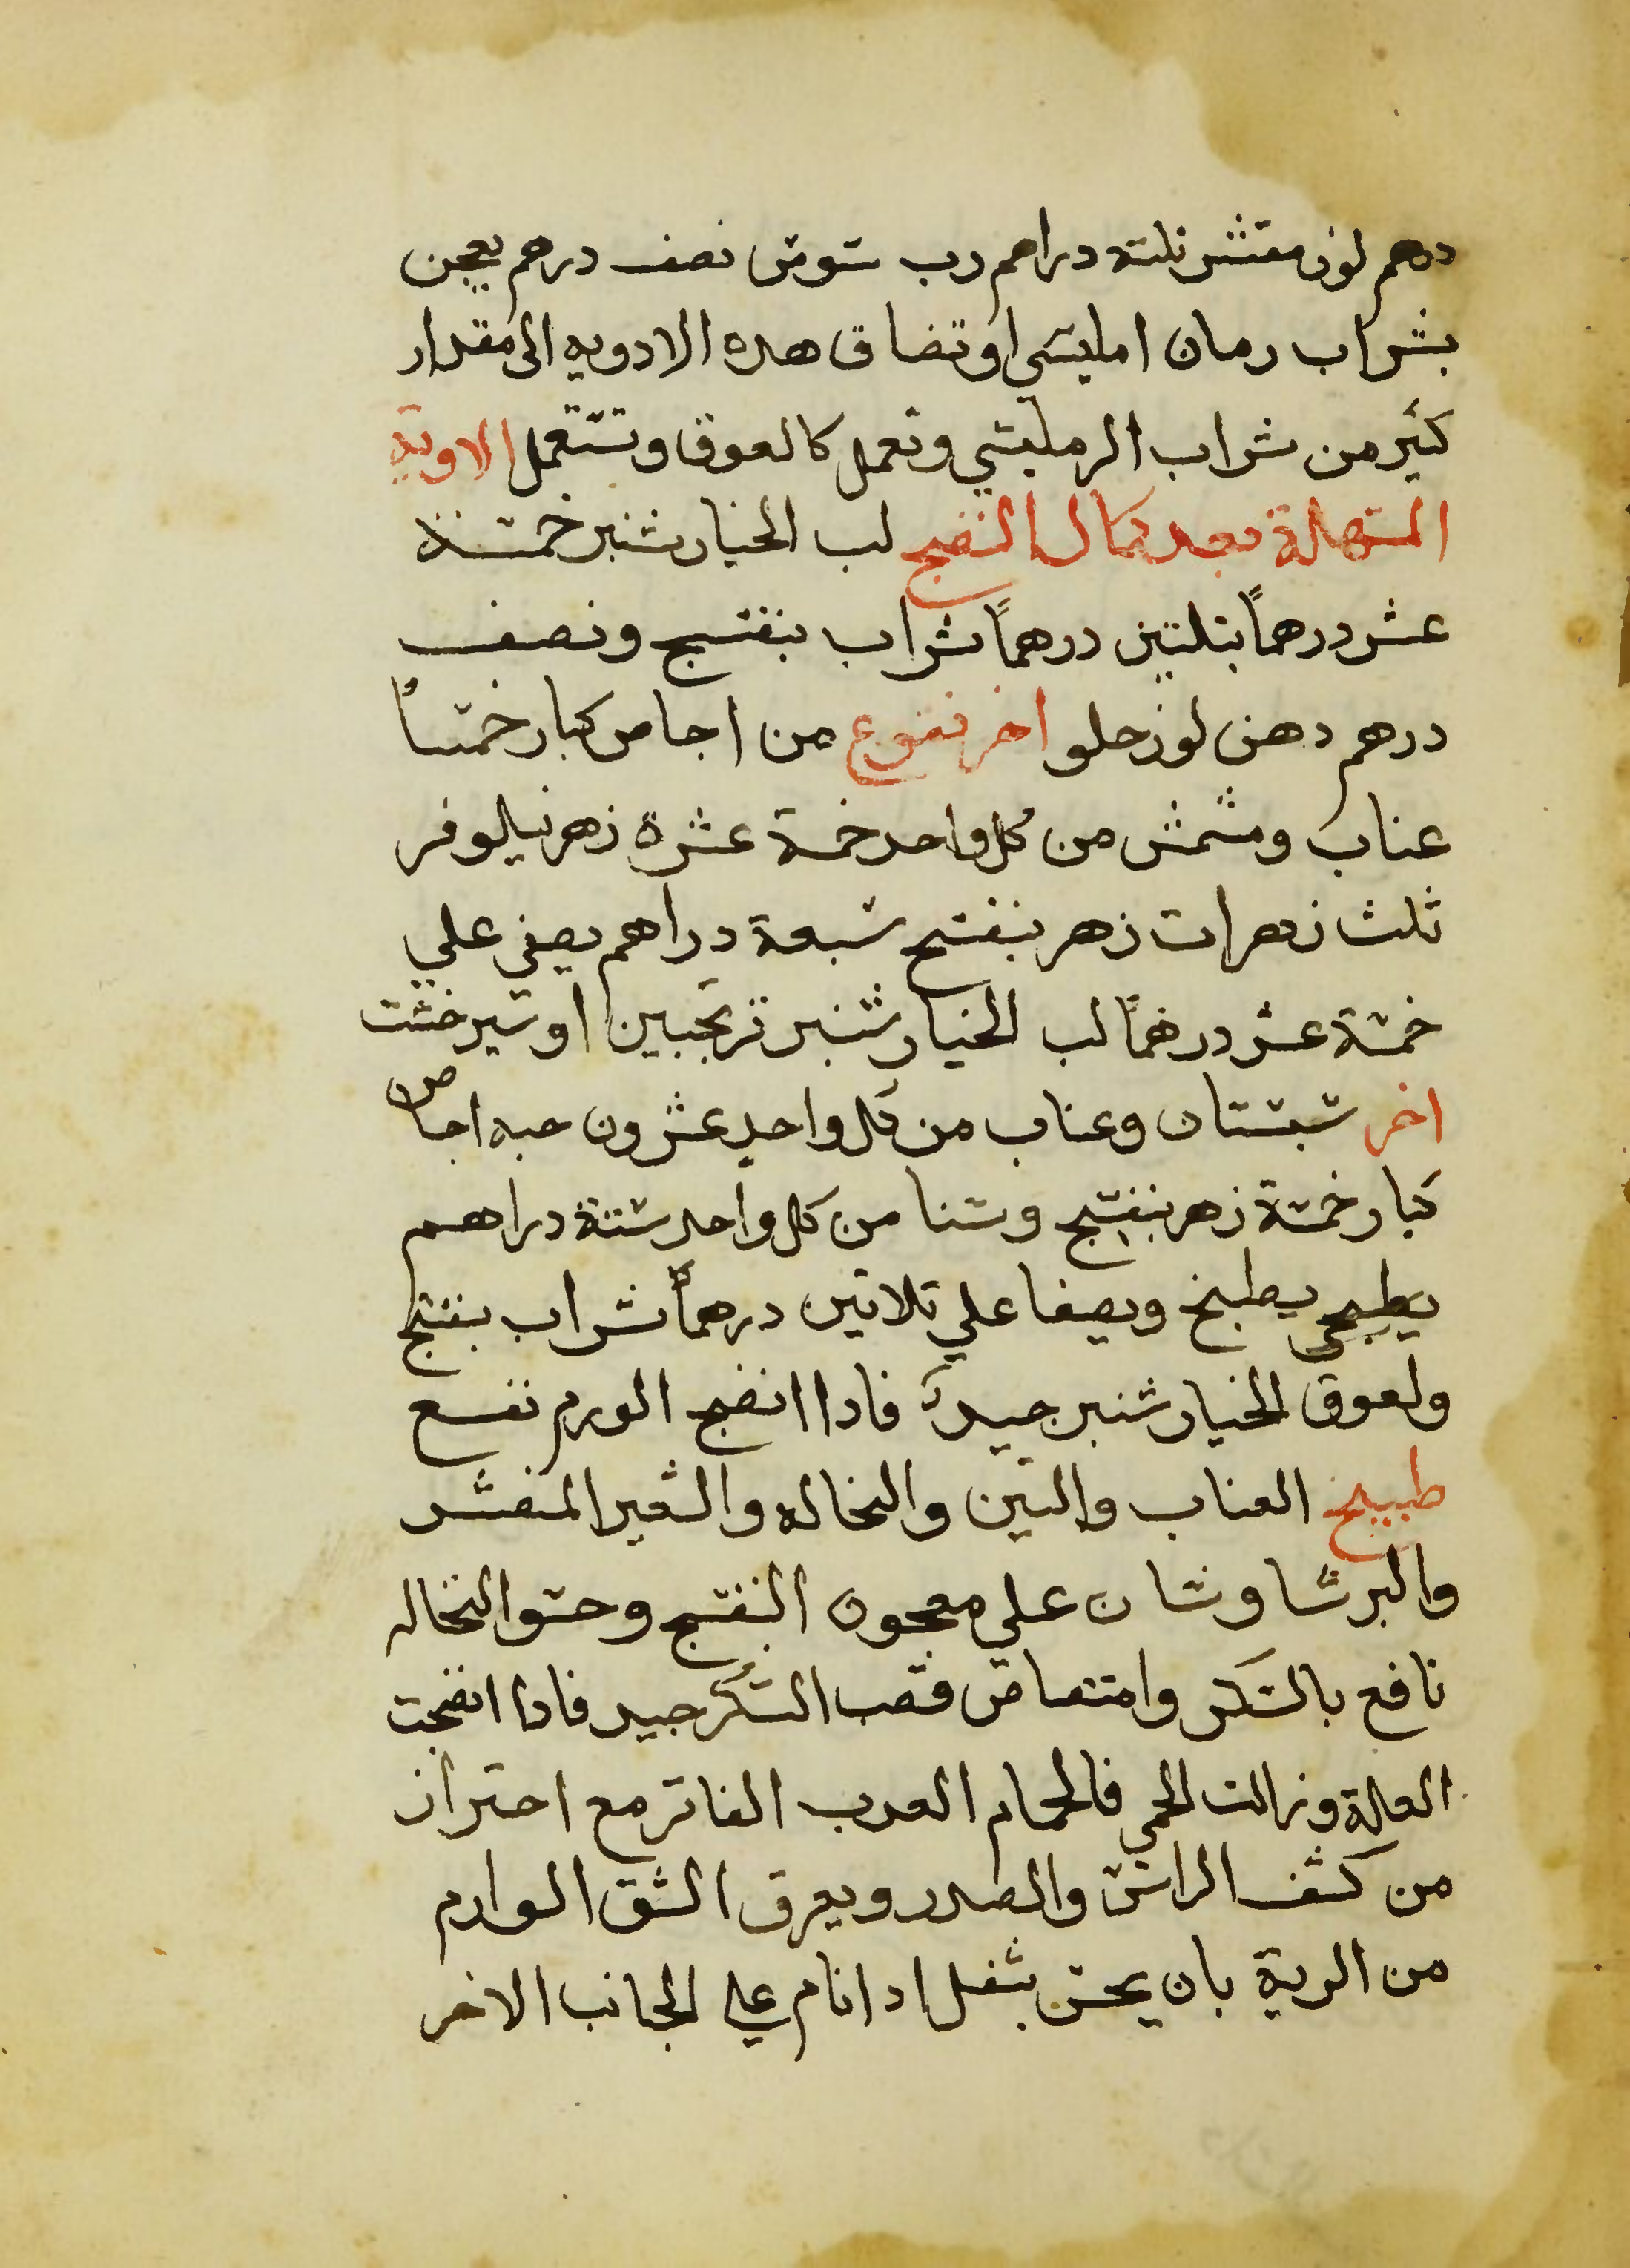 درهم لوز مقتشر ثلثة دراهم رب سوس نصف درهم يعجن
بشراب رمان امليسي او تضاف هده الادويه الى مقدار
كثير من شراب الرمليسي وتعمل كالعوق وتستعمل الاويه
المسهلة بعد كمال النضج لب الخيار شنبر خمسة
عشر درهماً بثلثين درهماً شراب بنفسج ونصف
درهم دهن لوز حلو اخر نقوع من اجاص كبار خمساً
عناب ومشمش من كل واحد خمسة عشرة زهر نيلوفر
ثلث زهرات زهر بنفسج سبعة دراهم يصفي علي
خمسة عشر درهماً لب الخيار شنبر ترنجبين او شيرخشت
اخر سبستان وعناب من كل واحد عشرون حبه اجاص
كبار خمسة زهر بنفسج وسنا من كل واحد ستة دراهم
يطبخ يطبخ ويصفا علي ثلاثين درهماً شراب بنفسج
ولعوق الخيار شنبر جيد فادا انضج الورم نفع
طبيخ العناب والتين والنخاله والشعير المقشر
والبرشاوشان علي معجون البنفسج وحسو النخاله
نافع بالسكر وامتصاص قصب السكر جيد فادا انضجت
العلة وزالت الحمي فالحمام العدب الفاتر مع احتراز
من كشف الراس والصدر ويعرف الشق الوارم
من الرية بان يحس بثقل ادا نام علي الجانب الاخر